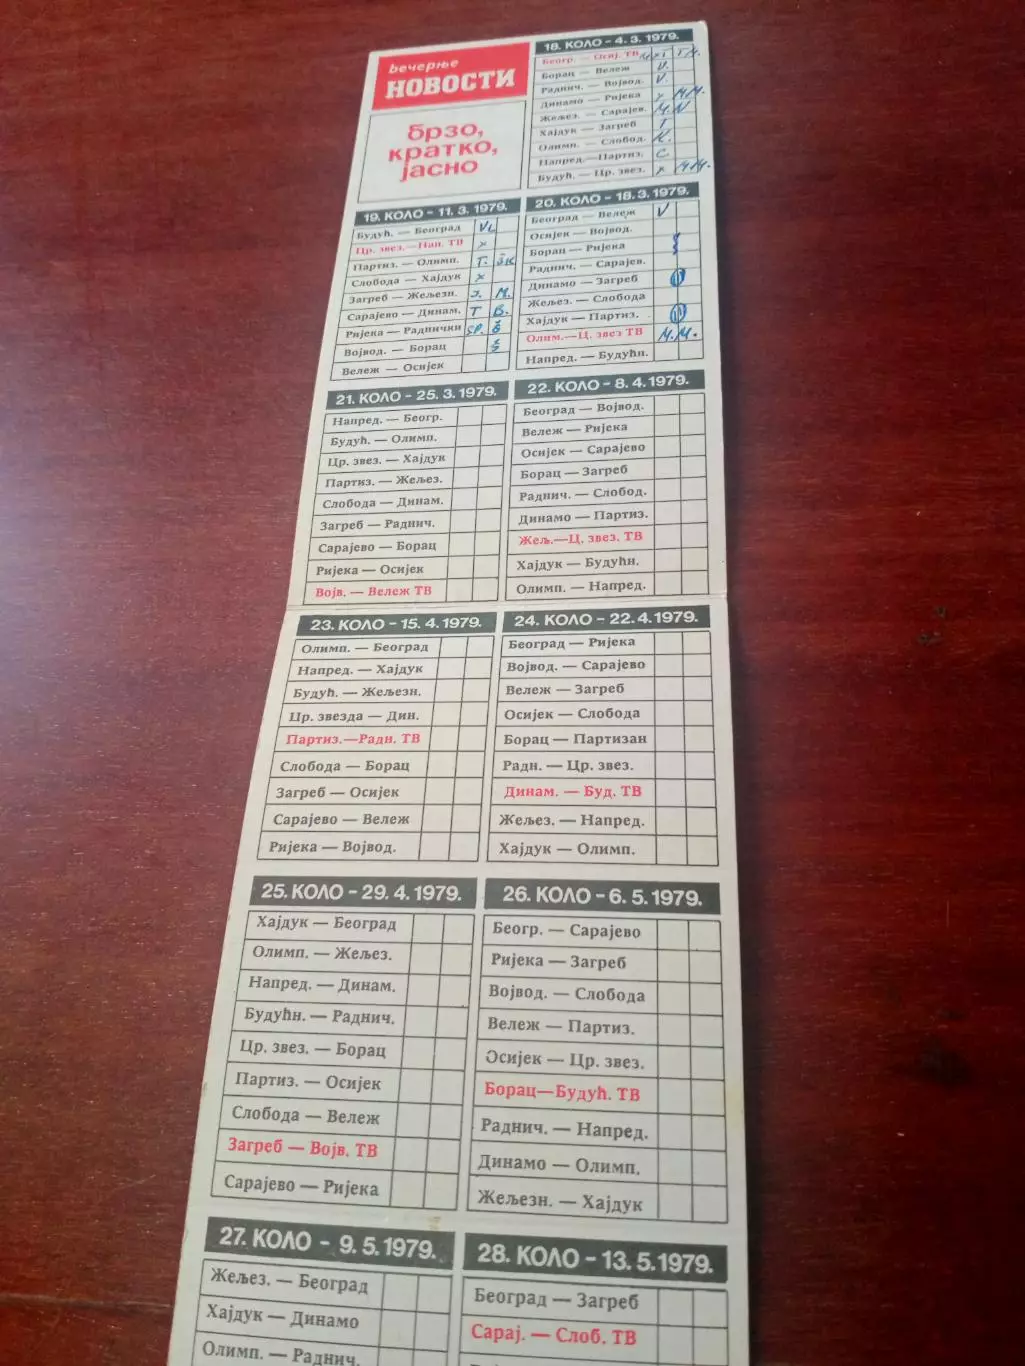 вечерње
НОВОСТИ
брзо,
кратко,
јасно
18. КОЛО - 4. 3. 1979.
Беогр. — Осиј. ТВ
Борац — Вележ V.
Раднич. — Војвод. V.
Динамо — Ријека x м.м.
Жељез. — Сарајев. М. N
Хајдук — Загреб Т
Олимп. — Слобод. К.
Напред.—Партиз. С.
Будућ. — Цр. звез. x м.м.
19. КОЛО - 11. 3. 1979.
Будућ. — Београд
Цр. звез.—Нап. ТВ x
Партиз. — Олимп. Т.
Слобода — Хајдук x
Загреб — Жељезн. М.
Сарајево — Динам. Т В.
Ријека — Раднички SP. š
Војвод. — Борац š
Вележ — Осијек
20. КОЛО - 18. 3. 1979.
Београд — Вележ V
Осијек — Војвод.
Борац — Ријека
Раднич. — Сарајев.
Динамо — Загреб
Жељез. — Слобода
Хајдук — Партиз.
Олим.—Ц. звез ТВ М.М.
Напред. — Будућн.
21. КОЛО - 25. 3. 1979.
Напред. — Беогр.
Будућ. — Олимп.
Цр. звез. — Хајдук
Партиз. — Жељез.
Слобода — Динам.
Загреб — Раднич.
Сарајево — Борац
Ријека — Осијек
Војв. — Вележ ТВ
22. КОЛО - 8. 4. 1979.
Београд — Војвод.
Вележ — Ријека
Осијек — Сарајево
Борац — Загреб
Раднич. — Слобод.
Динамо — Партиз.
Жељ.—Ц. звез. ТВ
Хајдук — Будућн.
Олимп. — Напред.
23. КОЛО - 15. 4. 1979.
Олимп. — Београд
Напред. — Хајдук
Будућ. — Жељезн.
Цр. звезда — Дин.
Партиз.—Радн. ТВ
Слобода — Борац
Загреб — Осијек
Сарајево — Вележ
Ријека — Војвод.
24. КОЛО - 22. 4. 1979.
Београд — Ријека
Војвод. — Сарајево
Вележ — Загреб
Осијек — Слобода
Борац — Партизан
Радн. — Цр. звез.
Динам. — Буд. ТВ
Жељез. — Напред.
Хајдук — Олимп.
25. КОЛО - 29. 4. 1979.
Хајдук — Београд
Олимп. — Жељез.
Напред. — Динам.
Будућн. — Раднич.
Цр. звез. — Борац
Партиз. — Осијек
Слобода — Вележ
Загреб — Војв. ТВ
Сарајево — Ријека
26. КОЛО - 6. 5. 1979.
Беогр. — Сарајево
Ријека — Загреб
Војвод. — Слобода
Вележ — Партиз.
Осијек — Цр. звез.
Борац—Будућ. ТВ
Раднич. — Напред.
Динамо — Олимп.
Жељезн. — Хајдук
27. КОЛО - 9. 5. 1979.
Жељез. — Београд
Хајдук — Динамо
Олимп. — Раднич.
28. КОЛО - 13. 5. 1979.
Београд — Загреб
Сарај. — Слоб. ТВ